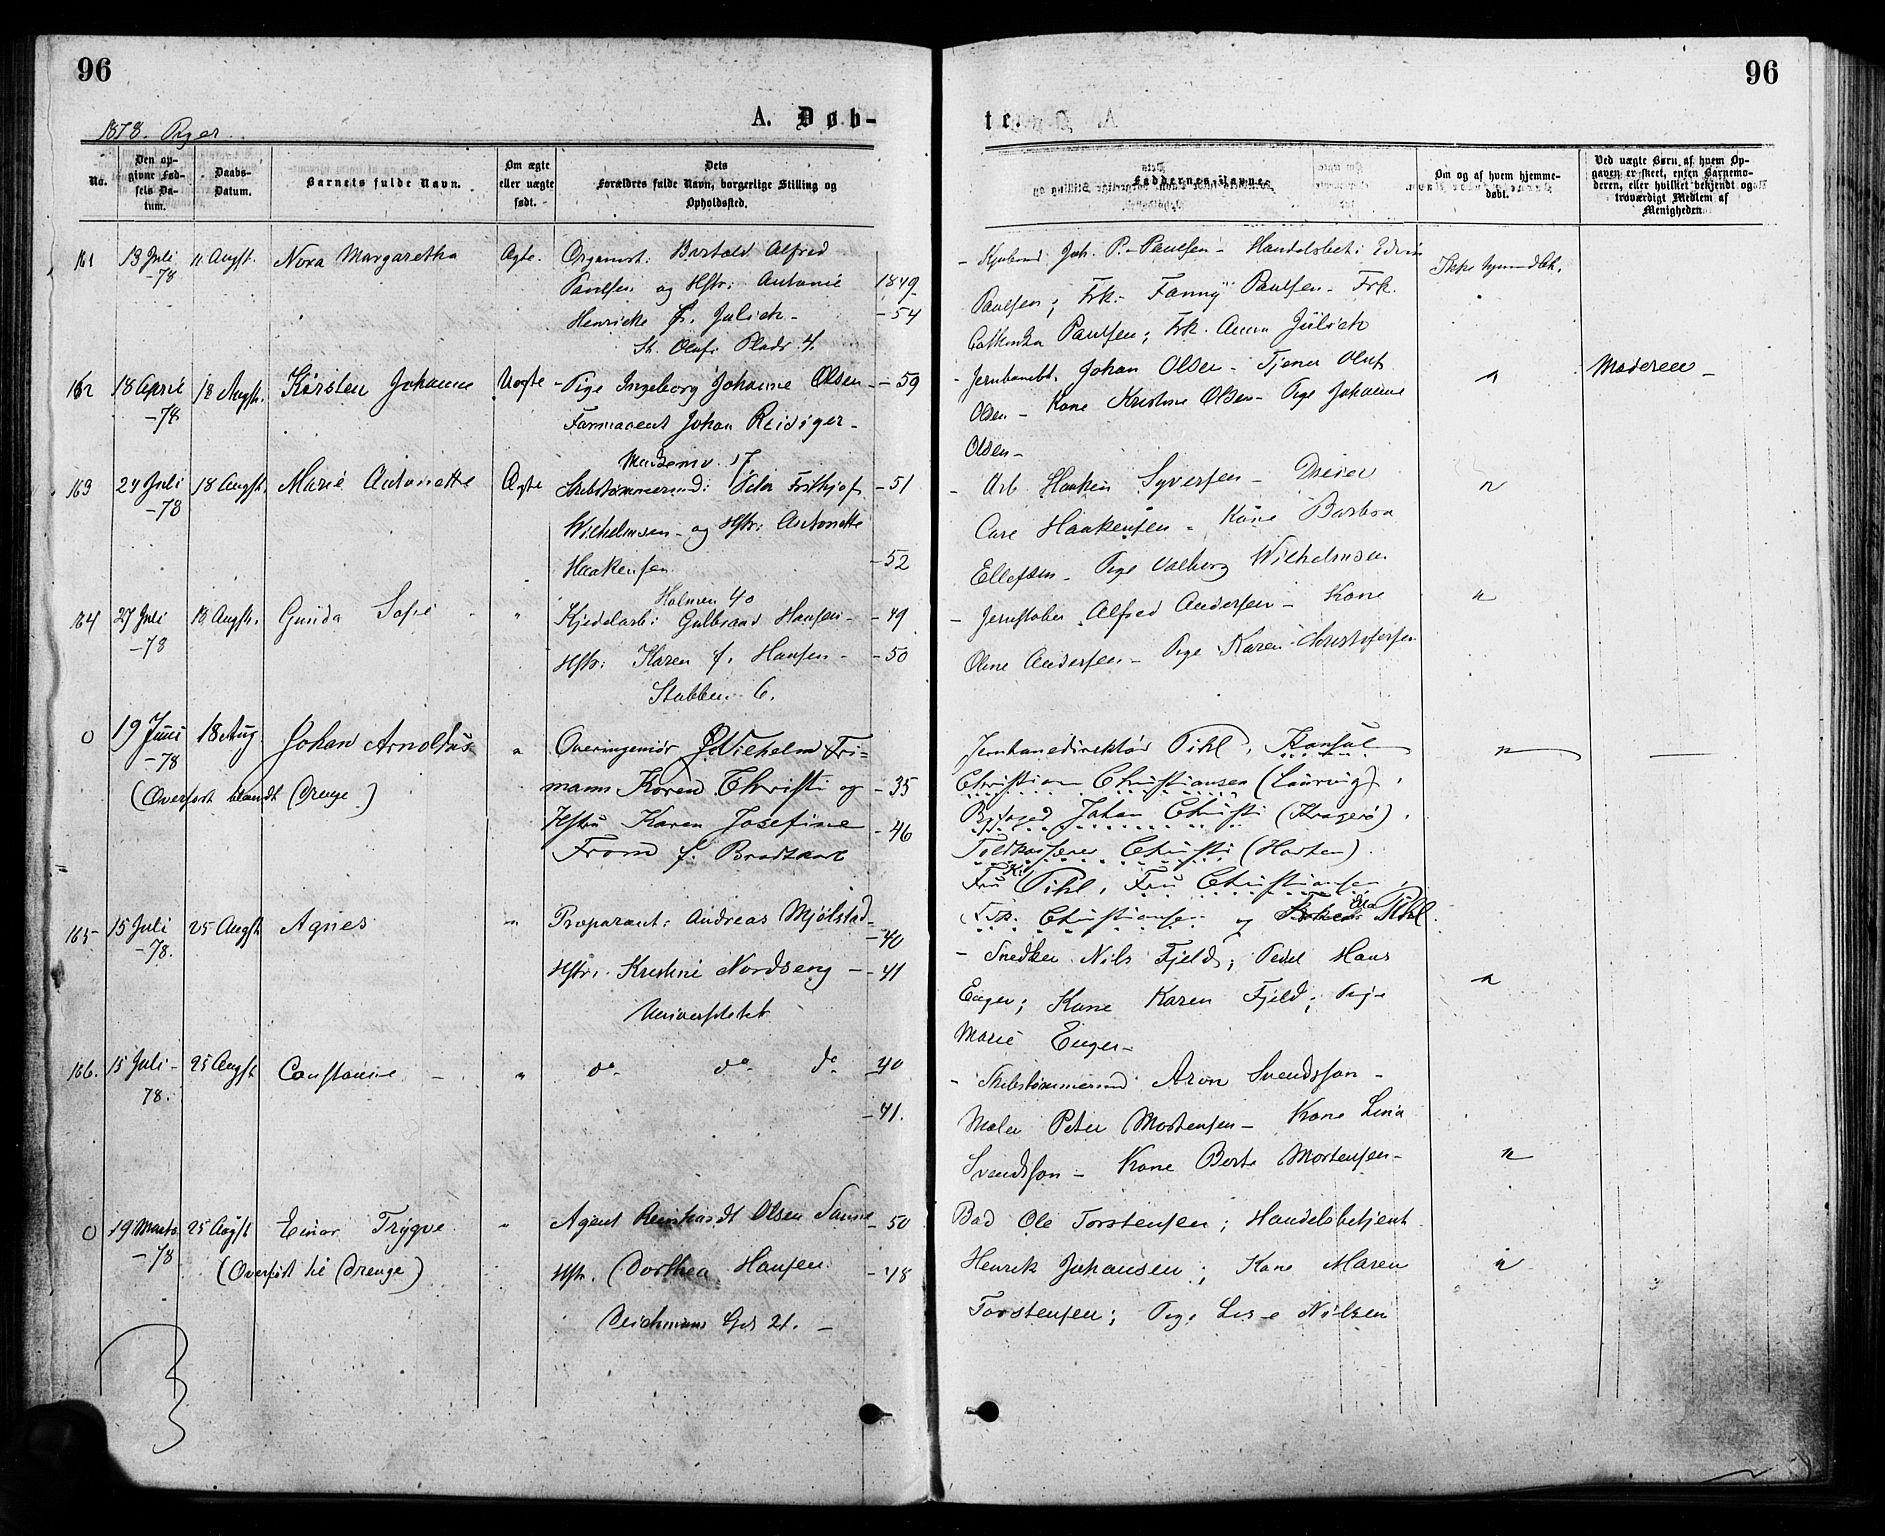 96
96
A. Døb-
te.
1878. Piger.
No.
Den op-
givne Fød-
sels Da-
tum.
Daabs-
Datum.
Barnets fulde Navn.
Om ægte
eller uægte
født.
Dets
Forældres fulde Navn, borgerlige Stilling og
Opholdssted.
Faddernes Navne
Om og af hvem hjemme-
døbt.
Ved uægte Børn af hvem Op-
gaven er skeet, enten Barnemo-
deren, eller hvilket bekjendt og
troværdigt Medlem af
Menigheden.
161 13 Juli -78 11 Augst. Nora Margaretha Ægte. Organist: Bartold Alfred
Paulsen og Hstr: Antonie 1849
Henricke f. Julich - -54
St. Olafs Plads 4.
- Joh. P. Paulsen - Handelsbet: Edvin
Paulsen; Frk. Fanny Paulsen - Frk.
Cathinka Paulsen; Frk. Anna Jülich
162 18 April -78 18 Augst. Kirsten Johanne Uægte - Pige Ingeborg Johanne Olsen - -59
Farmaceut Johan Reidiger -
17
- Johan Olsen - Tjener Oluf
Olsen - Kone Kristine Olsen - Pige Johanne
Olsen -
Moderen -
163 24 Juli -78 18 Augst. Marie Antonette Ægte Skibstømmermd: Peter Frithjof -51
Wilhelmsen - og Hstr: Antonette
Haakensen -52
Holmen 40
- Arb. Haaken Syversen - Dreier
Carl Haakensen - Kone Barbra
Ellefsen - Pige Valborg Wilhelmsen
164 27 Juli -78 18 Augst. Gunda Sofie " Kjedelarb: Gulbrand Hansen - -49
Hstr: Karen f. Hansen - -50
Stubben 6.
- Jernstøber Alfred Andersen - Kone
Oline Andersen - Pige Karen Christofersen
0 19 Juni -78 18 Aug. Johan Arnoldus " Overingeniør Wilhelm Fri-
(Overført blandt Drenge)
mann Koren Christi og -35
Hstru Karen Josefine -46
From f. Bradtkorb
Jernbanedirektør Pihl, Konsul
Christian Christiansen (Laurvig),
Byfoged Johan Christi (Kragerø),
Toldkasserer Christi (Horten)
Fru Pihl, Fru Christiansen,
Frk. Christiansen og Pihl.
165 15 Juli -78. 25 Augst Agnes " Præparant: Andreas Mjølstad - -40
Hstr. Kristine Nordseng - -41
Universitetet
- Snedker Nils Fjeld; Pedel Hans
Enger; Kone Karen Fjeld; Pige
Marie Enger -
166. 15 Juli - 78. 25 Augst Constance - " do do do -40
-41.
- Skibstømmermd Aron Svendsson -
Maler Peter Mortensen - Kone Lina
Svendsson - Kone Berte Mortensen -
0 19 Marts -78 25 Augst Einar Trygve " Agent Reinhardt Olsen Sanne -50
(Overført til Drenge)
Hstr. Dorthea Hansen. -48
Deichmans Gd 21. -
Ole Torstensen; Handelsbetjent
Henrik Johansen; Kone Maren
Torstensen; Pige Lise Nilsen